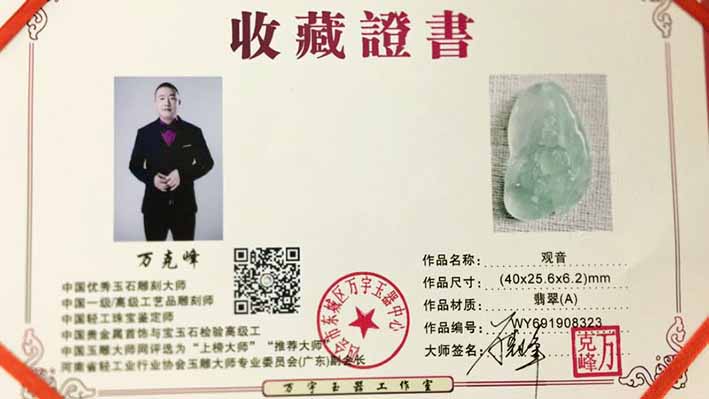 收藏證書
万克峰
中国优秀玉石雕刻大师
中国一级/高级工艺品雕刻师
中国轻工珠宝鉴定师
中国贵金属首饰与宝玉石检验高级工
中国玉雕大师网评选为“上榜大师”“推荐大师”
河南省轻工业行业协会玉雕大师专业委员会(广东)副会长
市东城区万宇玉器中心
作品名称: 观音
作品尺寸: (40x25.6x6.2)mm
作品材质: 翡翠(A)
作品编号: WY691908323
大师签名:
万克峰
万宇玉器工作室